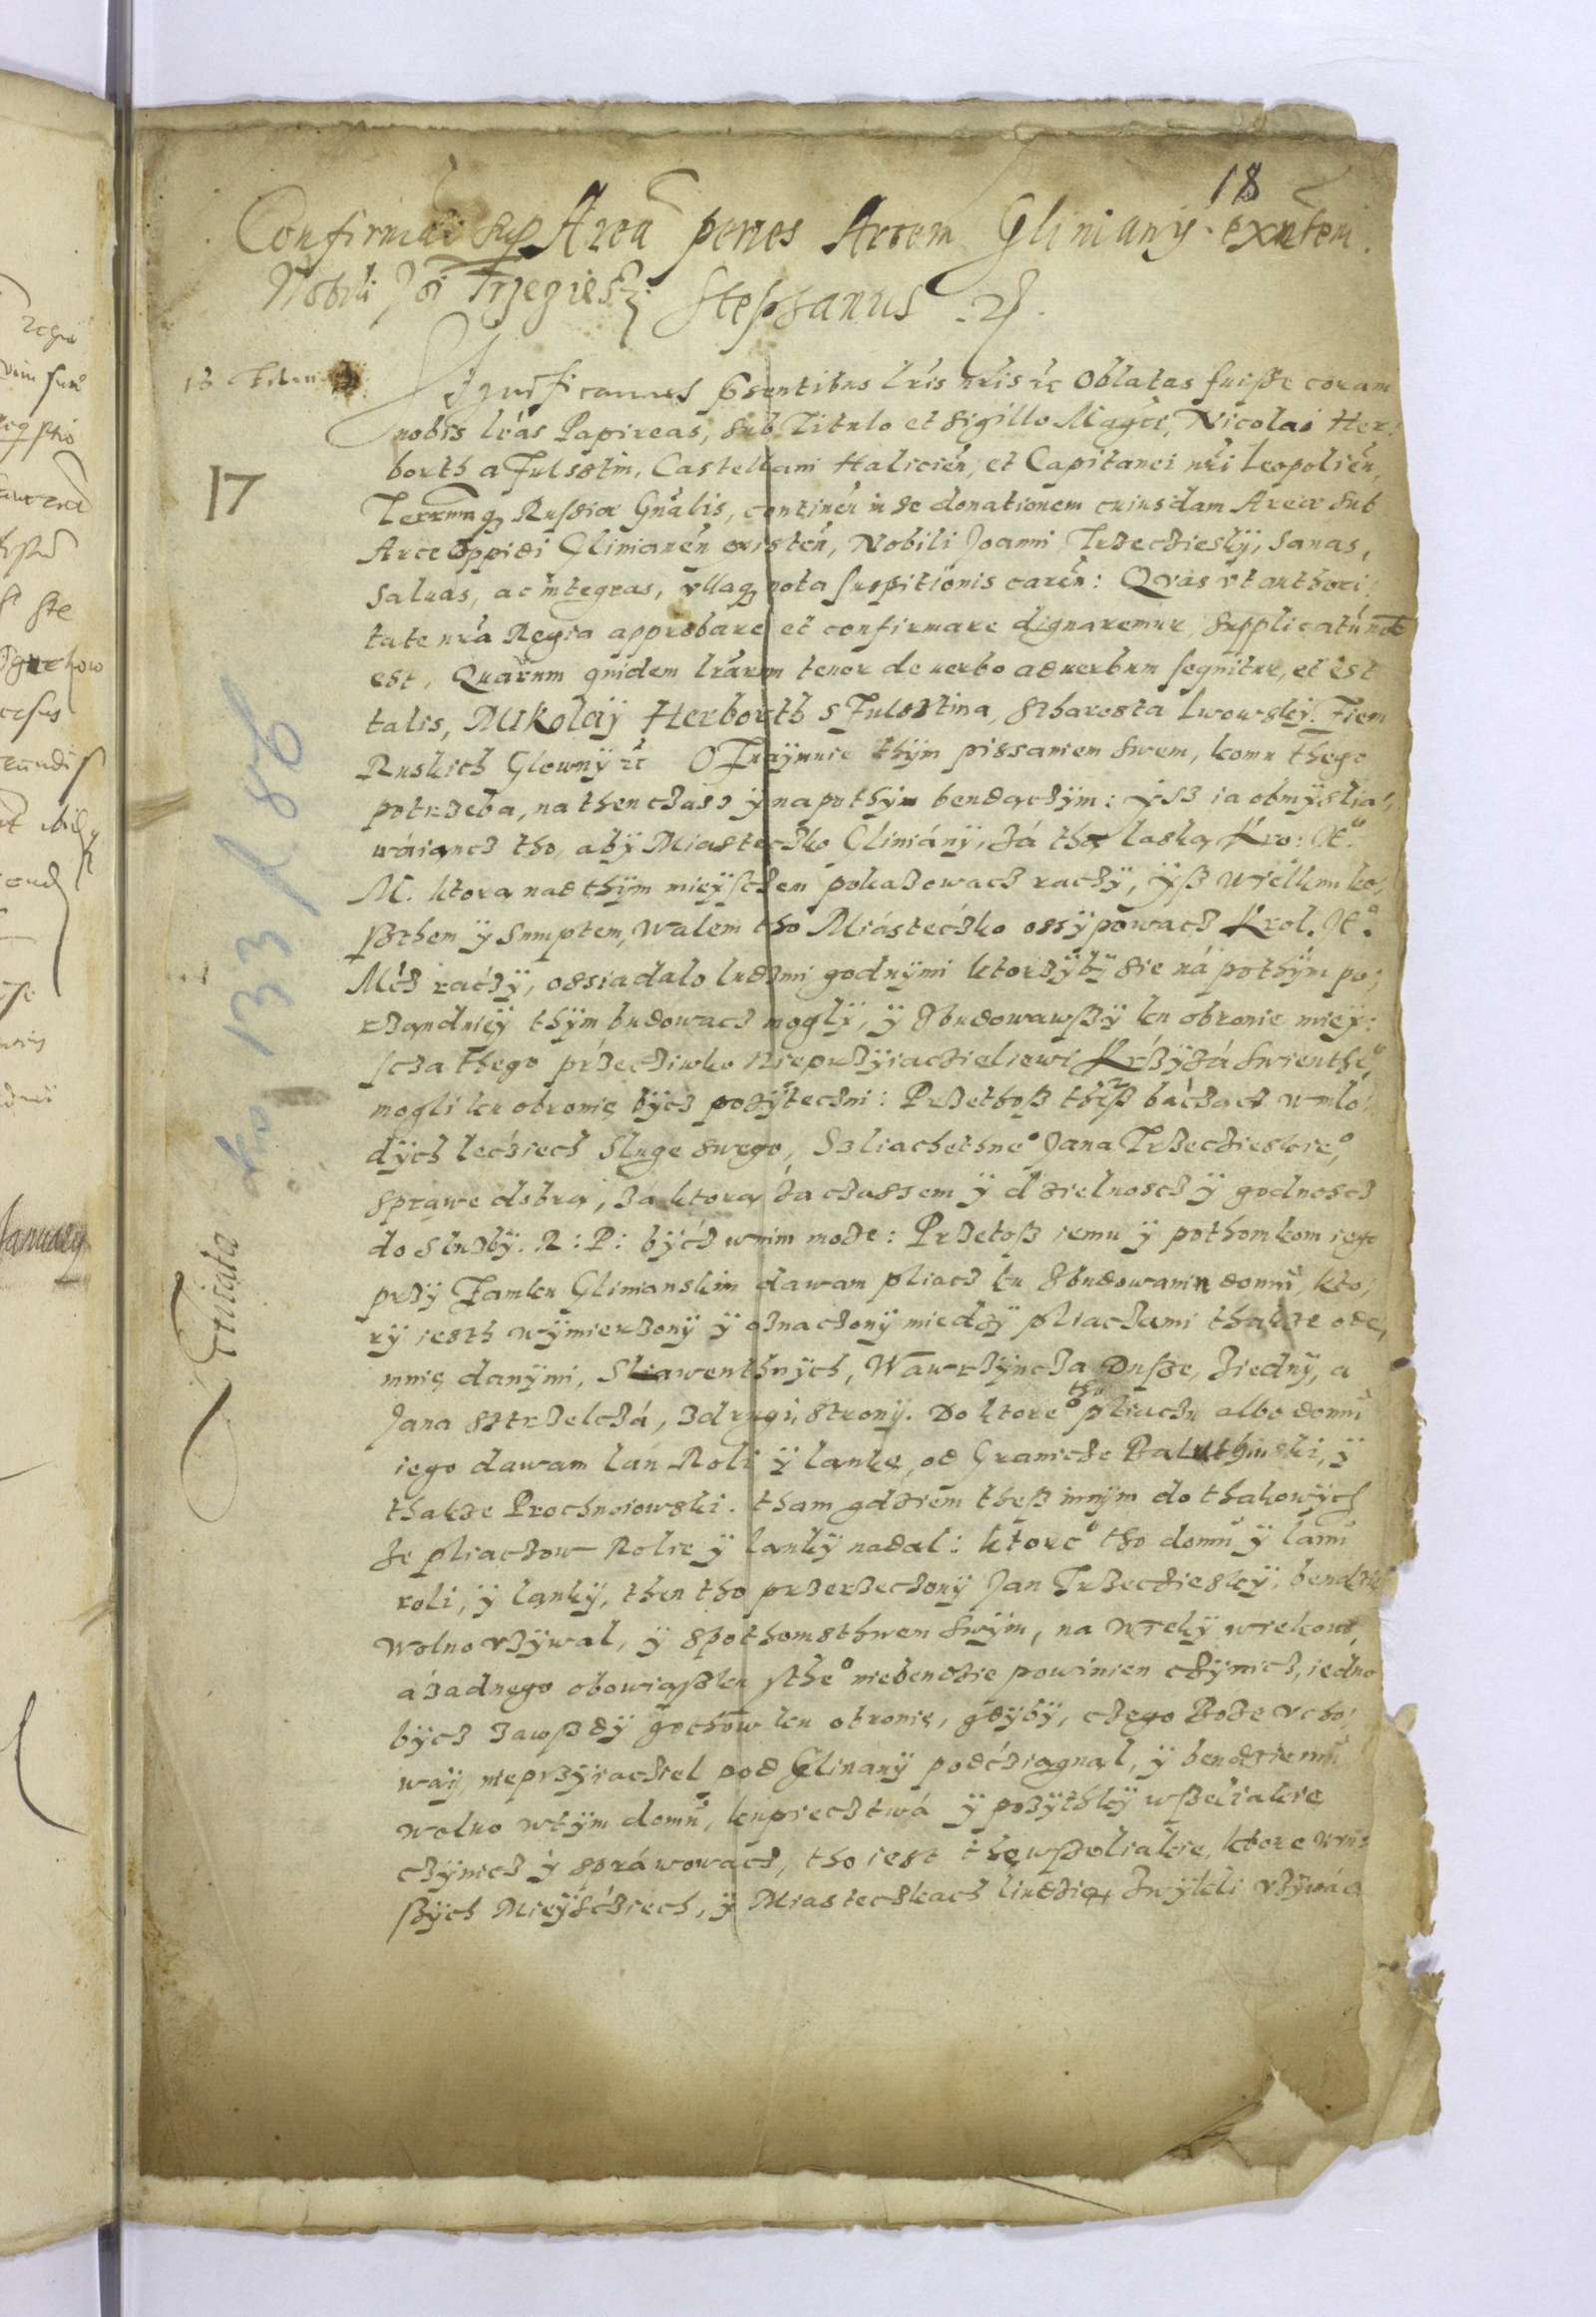 18
Confirmatio sup Area penes Arcem Gliniany exntem
Nobili Joi Trzeciesky Stephanus
Significamus psentibus lris nris etc Oblatas fuisse coram
nobis lras Papireas, sub Titulo et Sigillo Magci, Nicolai Her:
borth a Fulsstin, Castellani Halicien, et Capitanei nri Leopolien,
17
Terrarumq Russiæ Gnalis, continen in se donationem cuiusdam Areæ sub
Arce oppidi Glinianen existen, Nobili Joanni Trzecziesky, Sanas,
Saluas, ac integras, vllaq nota suspitionis caren: Qvas vt authori:
tate nra Regia approbare et confirmare dignaremur, supplicatu nob
est, Quarum quidem lrarum tenor de uerbo ad uerbum sequitur, et est
talis, Mikolaÿ Herborth s Fulsztina, Stharosta Lwowskÿ, Ziem
Ruskich Glownÿ etc Oznaÿmuie thÿm pissaniem swem, komu thego
potrzeba, na then czass ÿ na pothÿm bendączÿm: ÿsz ia obmÿslia,
waiancz tho, abÿ Miasteczko Glinianÿ, Zá thą laską Kro: Je.
M. ktorą nad thÿm mieÿsczem pokazowacz raczÿ, ÿsz wielkim ko,
szthem ÿ sumptem, walem tho Miásteczko ossÿpowacz Krol. Je°
Mcz raczÿ, ossiadalo ludzmi godnÿmi ktorzÿbÿ sie ná pothÿm po,
rzandnieÿ thÿm budowacz moglÿ, ÿ Zbudowawszÿ ku obronie mieÿ:
scza thego przecziwko nieprzÿiaczieliewi Krzÿzá Swienthe°
mogli ku obronie bÿcz pozÿteczni: Przethosz thesz báczącz w mlo,
dÿch lecziech Sluge swego, Szliachethne° Jana Trzeczieskie°,
sprawe dobrą, zá ktorą zá czassem ÿ dzielnoscz ÿ godnoscz
do sluzbÿ. R: P: bÿcz w nim moze: Przetosz iemu ÿ pothomkom iego
przÿ Zamku Glinianskim dawam pliacz ku Zbudowaniu domu, kto,
rÿ iesth wÿmierzonÿ ÿ oznaczonÿ miedzÿ pliaczami thakze ode,
mnie danÿmi, Sliawenthnÿch, Wawrzÿncza Dusze, ziednÿ, a
Jana Sztrzelczá, z drugi stronÿ. Do ktore° tho pliaczu albo domu
iego dawam lán Roli ÿ lanke, od Granicze Baluthinski, ÿ
thakze Prochnoiowski. tham gdziem thesz innÿm do thakowÿch
ze pliaczow Rolie ÿ lankÿ nadal: ktore° tho domu ÿ lanu
roli, ÿ lankÿ, then tho przerzeczonÿ Jan Trzeczieskÿ, bendzie
wolno vzÿwal, ÿ s pothomsthwem swÿm, na wiekÿ wiekow,
á zadnego obowiąszku sthe° niebendzie powinien czÿnicz, iedno
bÿcz zawszdÿ gothow ku obronie, gdÿbÿ, czego Boze vcho,
waÿ, nieprzÿiacziel pod Glinanÿ podcziągnal, ÿ bendzie mu
wolno w tÿm domu, kupiecztwá ÿ pozÿthkÿ wszeliakie
czÿnicz ÿ sprawowacz, tho iest the wszeliakie, ktore w in
szÿch Mieÿscziech, ÿ Miasteczkach liudzie zwÿkli vzÿwác